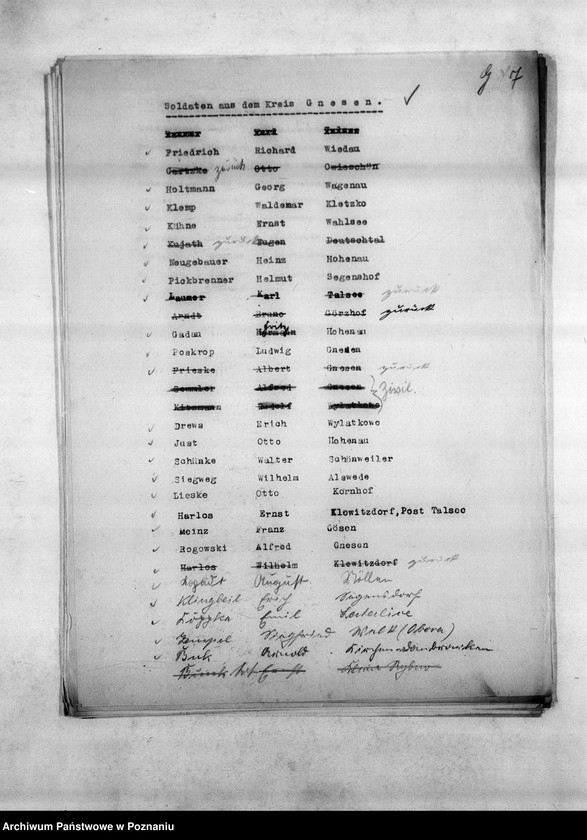 G 7
Soldaten aus dem Kreis Gnesen. ✓
✓ Friedrich Richard Wiedau
Gertzke zurück Otto
✓ Holtmann Georg Wagenau
✓ Klemp Waldemar Kletzko
✓ Kühne Ernst Wahlsee
✓ Kujath zurück Eugen Deutschtal
✓ Neugebauer Heinz Hohenau
✓ Pickbrenner Helmut Segenshof
✓ Launer Karl Talsee zurück
Arndt Bruno Görzhof zurück
✓ Gadan Fritz Hohenau
✓ Poskrop Ludwig Gnesen
✓ Frieske Albert Gnesen zurück
Alfred Gnesen Zivil.
Wylatkowo
✓ Drews Erich Wylatkowo
✓ Just Otto Hohenau
✓ Schünke Walter Schönweiler
✓ Siegweg Wilhelm Alswede
✓ Lieske Otto Kornhof
✓ Harlos Ernst Klewitzdorf, Post Talsee
✓ Meinz Franz Gösen
✓ Rogowski Alfred Gnesen
✓ Harlos Wilhelm Klewitzdorf zurück
✓ August
✓ Klingbeil Erich
✓ Emil
✓ Zempel Siegfried
✓ Buk Arnold
Archiwum Państwowe w Poznaniu